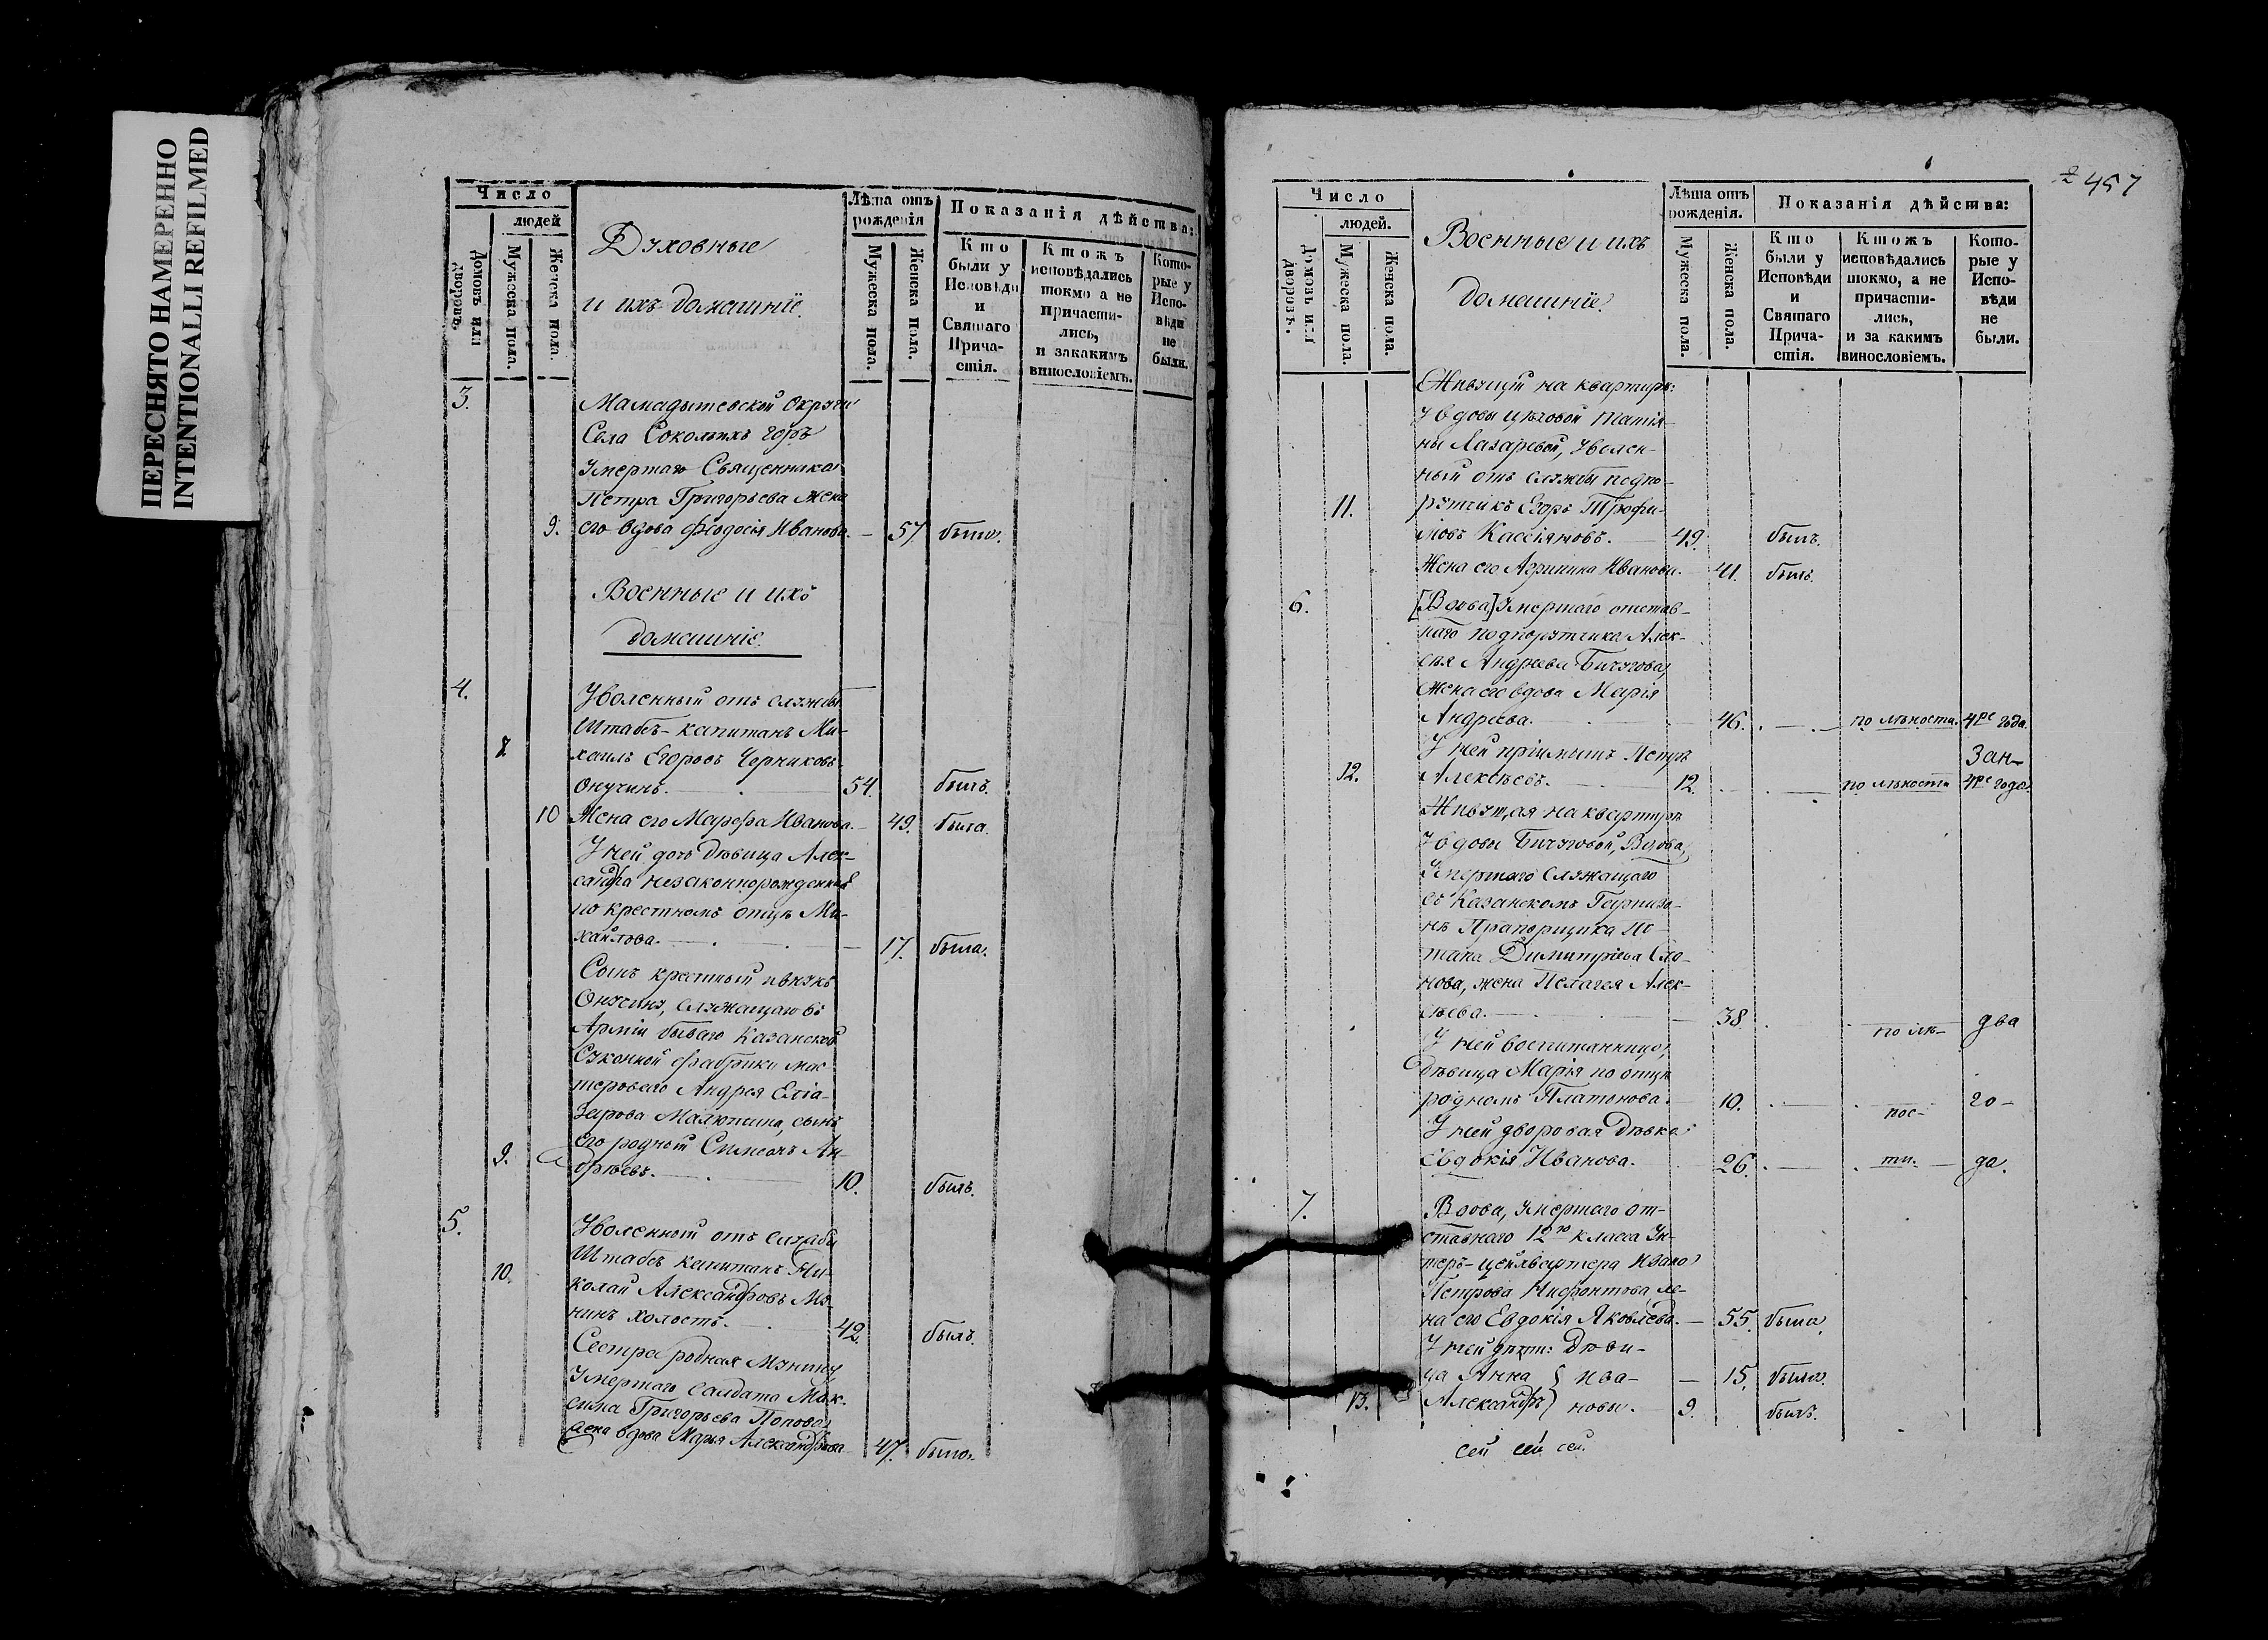 ПЕРЕСНЯТО НАМЕРЕННО
INTENTIONALLI REFILMED
Число
людей
Домовъ или дворовъ.
Мужеска пола.
Женска пола.
Духовные
и ихъ домашнiе.
Лѣта отъ
рожденiя
Мужеска пола.
Женска пола.
Показанiя дѣйства:
Кто
были у
Исповѣди
и
Святаго
Прича-
стiя.
Ктожъ
исповѣдались
токмо а не
причасти-
лись,
и закакимъ
винословiемъ.
Кото-
рые у
Испо-
вѣди
не
были.
3.
Мамадышевской округи
Села Сокольихъ горъ
Умершаго Священника
Петра Григорьева жена
9. его вдова Феодосiя Иванова. — 57. была.
Военные и ихъ
домашнiе.
4.
Уволенный отъ службы
Штабсъ-капитанъ Ми-
8. хаилъ Егоровъ Черниковъ-
Онучинъ. — 54. былъ.
10 Жена его Марфа Иванова. — 49. была.
У ней дочь дѣвица Алек-
сандра незаконнорожденная
по крестномъ отцѣ Ми-
хайлова. — 17. была.
Сынъ крестный
служащаго въ
Армiи бывшаго Казанской
Суконной фабрики мас-
тероваго Андрея Елiа-
зарова Малютина, сынъ
9. его родный Симеонъ Ан-
дреевъ. — 10. былъ.
5.
Уволенный отъ службы
Штабсъ капитанъ Ни-
10. колай Александровъ Мя-
нинъ холостъ. 42. былъ.
Сестра родная
Умершаго солдата Мак-
сима Григорьева Попова
жена вдова Марья Александрова 47. была.
457
Число
людей.
Домовъ или дворовъ.
Мужеска пола.
Женска пола.
Военные и ихъ
домашнiе.
Лѣта отъ
рожденiя.
Мужеска пола.
Женска пола.
Показанiя дѣйства:
Кто
были у
Исповѣди
и
Святаго
Прича-
стiя.
Ктожъ
исповѣдались
токмо, а не
причасти-
лись,
и за какимъ
винословiемъ.
Кото-
рые у
Испо-
вѣди
не
были.
Живущiй на квартирѣ:
У вдовы цѣховой Татiя-
ны Лазаревой, Уволен-
ный отъ службы подпо-
11. рутчикъ Егоръ Трофи-
мовъ Кассiяновъ. — 49. былъ.
Жена его Агрипина Иванова. 41. была.
6. [Вдова] Умершаго отстав-
наго подпорутчика Алек-
сѣя Андреева Бичугова,
жена его вдова Марiя
Андреева. — 46. — по лѣности. 4ре года.
У ней прiимышъ Петръ Зан-
12. Алексѣевъ. 12. — по лѣности 4ре года.
Живущая на квартирѣ
У вдовы Бичуговой, Вдова,
Умершаго Служащаго
въ Казанскомъ Гарнизо-
нѣ Прапорщика По-
тапа Димитрiева Сло-
нова, жена Пелагея Алек-
сѣева. — 38. — по лѣ- два
У ней воспитанница,
дѣвица Марiя по отцѣ
родномъ Платонова. 10. — нос- го-
У ней дворовая дѣвка
Евдокiя Иванова. 26. — ти. — да.
7. Вдова, Умершаго от-
ставнаго 12го класса Ун-
теръ-цейхвартера Ивана
Петрова Нифонтова, же-
на его Евдокiя Яковлева. — 55. была.
У ней дѣти: Дѣви-
ца Анна } Ива- — 15. была.
13. Александръ } новы. — 9. былъ.
сей сей сей